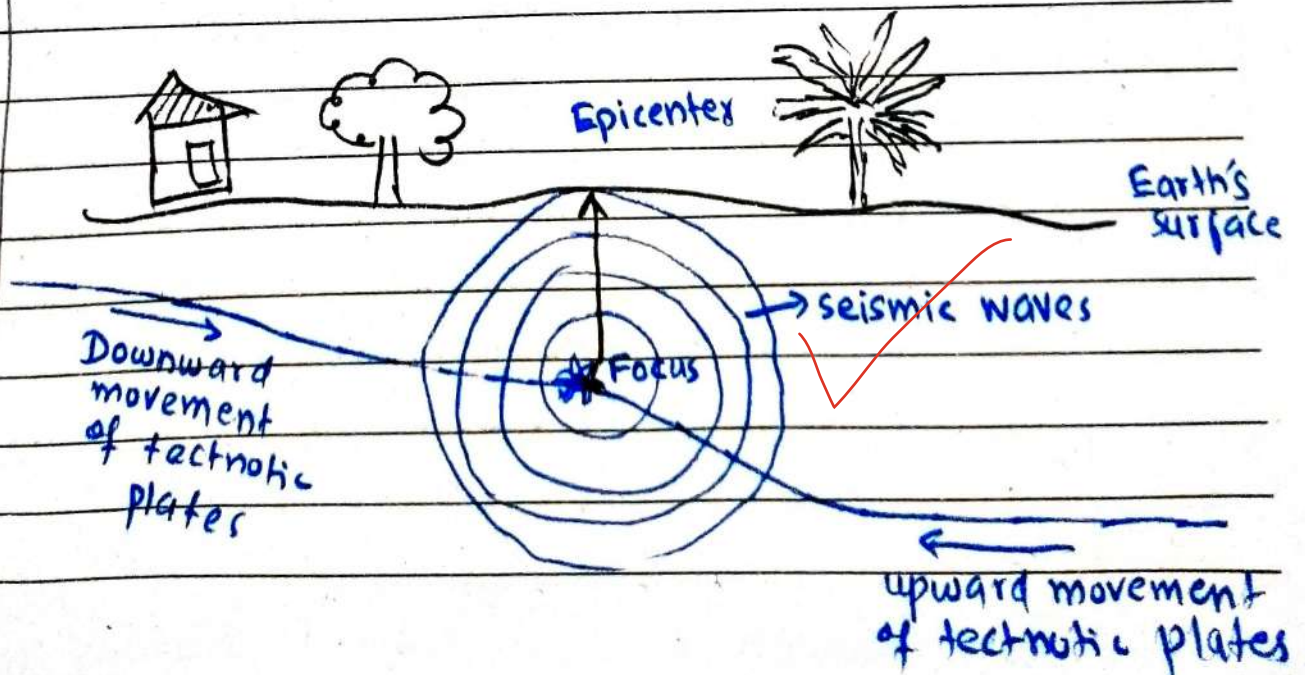 Epicenter
Earth's
surface
→ seismic waves
Focus
Downward
movement
of tectnotic
plates
upward movement
of tectnotic plates